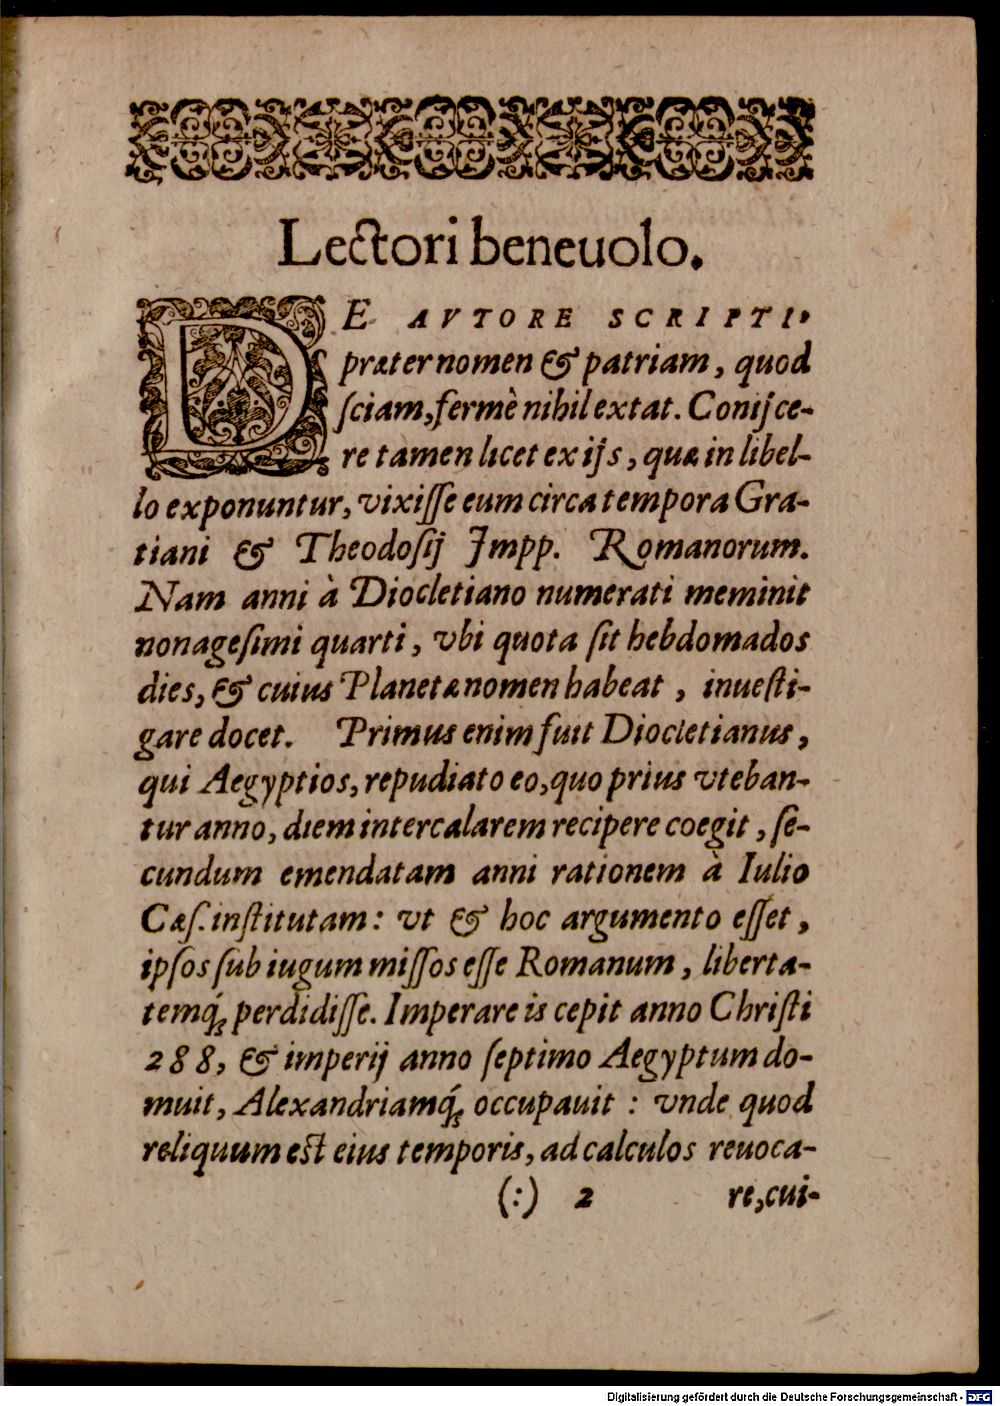 Lectori beneuolo.
DE AVTORE SCRIPTI,
præter nomen & patriam, quod
ſciam, fermè nihil extat. Conijce-
re tamen licet ex ijs, quæ in libel-
lo exponuntur, vixiſſe eum circa tempora Gra-
tiani & Theodoſij Impp. Romanorum.
Nam anni à Diocletiano numerati meminit
nonageſimi quarti, vbi quota ſit hebdomados
dies, & cuius Planetæ nomen habeat, inueſti-
gare docet. Primus enim fuit Diocletianus,
qui Aegyptios, repudiato eo, quo prius vteban-
tur anno, diem intercalarem recipere coegit, ſe-
cundum emendatam anni rationem à Iulio
Cæſ. inſtitutam: vt & hoc argumento eſſet,
ipſos ſub iugum miſſos eſſe Romanum, liberta-
temq́; perdidiſſe. Imperare is cepit anno Chriſti
288, & imperij anno ſeptimo Aegyptum do-
muit, Alexandriamq́; occupauit: vnde quod
reliquum eſt eius temporis, ad calculos reuoca-
(:) 2 re, cui-
Digitalisierung gefördert durch die Deutsche Forschungsgemeinschaft - DFG